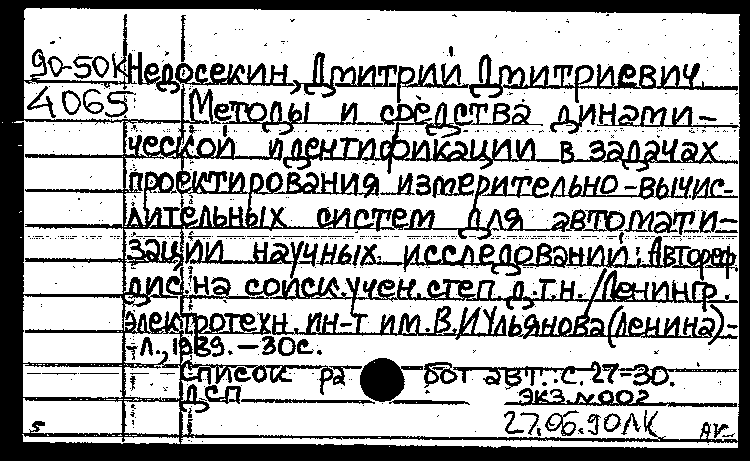 90-50К Недосекин, Дмитрий Дмитриевич.
4065 Методы и средства динами-
ческой идентификации в задачах
проектирования измерительно-вычис-
лительных систем для автомати-
зации научных исследований: Автореф.
дис. на соиск. учен. степ. д.т.н. /Ленингр.
электротехн. ин-т им. В.И Ульянова (Ленина)-
-Л., 1989. – 30с.
Список работ авт.: с. 27-30.
ДСП экз. №002
27.06.90ЛК
5